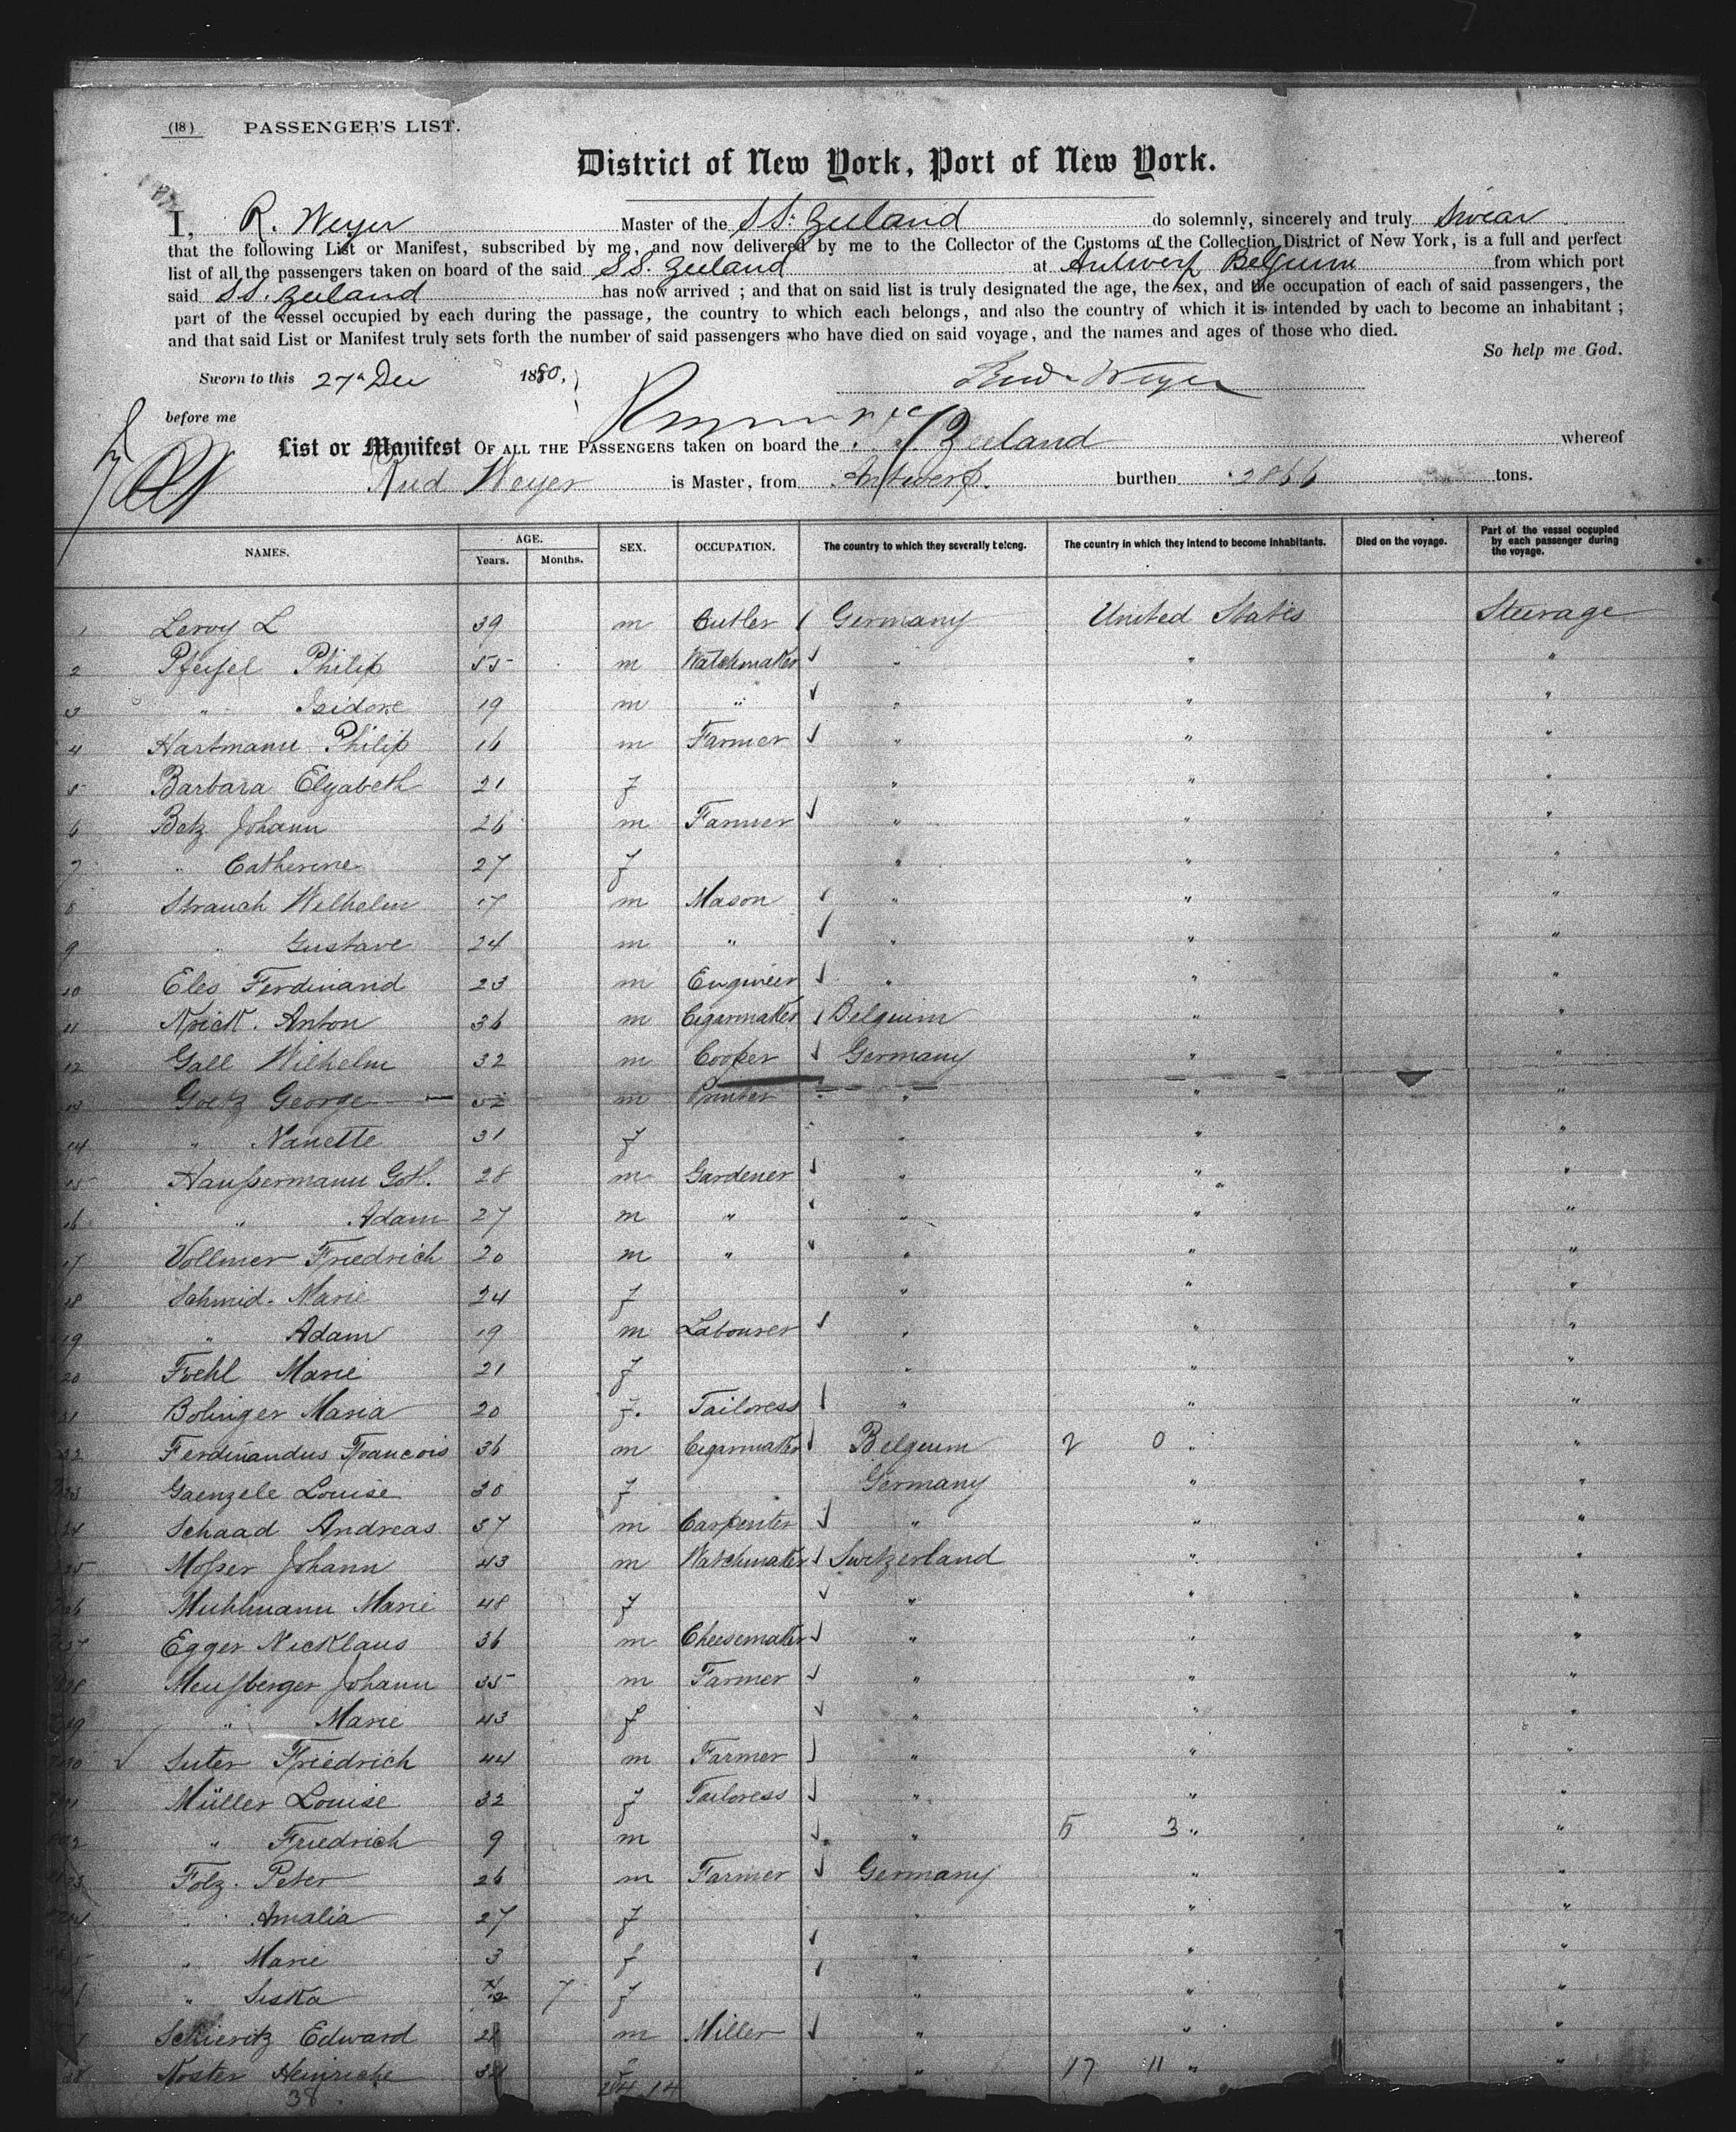 (18) PASSENGER'S LIST.
District of New York, Port of New York.
I, R. Weyer Master of the SS. Zeeland do solemnly, sincerely and truly Swear
that the following List or Manifest, subscribed by me, and now delivered by me to the Collector of the Customs of the Collection District of New York, is a full and perfect
list of all the passengers taken on board of the said SS. Zeeland at Antwerp Belgium from which port
said SS. Zeeland has now arrived ; and that on said list is truly designated the age, the sex, and the occupation of each of said passengers, the
part of the vessel occupied by each during the passage, the country to which each belongs, and also the country of which it is intended by each to become an inhabitant ;
and that said List or Manifest truly sets forth the number of said passengers who have died on said voyage, and the names and ages of those who died.
So help me God.
Sworn to this 27th Dec 1880, Rud. Weyer
before me
List or Manifest OF ALL THE PASSENGERS taken on board the S.S. Zeeland whereof
Rud Weyer is Master, from Antwerp. burthen 2866 tons.
NAMES. AGE. Years. Months. SEX. OCCUPATION. The country to which they severally belong. The country in which they intend to become inhabitants. Died on the voyage. Part of the vessel occupied by each passenger during the voyage.
1 Leroy L 39 m Cutler Germany United States Steerage
2 Pfeifel Philip 55 m Watchmaker " " "
3 " Isidore 19 m " " " "
4 Hartmann Philip 16 m Farmer " " "
5 Barbara Elyabeth 21 f " " "
6 Betz Johann 26 m Farmer " " "
7 " Catherine 27 f " " "
8 Strauch Wilhelm 17 m Mason " " "
9 " Gustave 24 m " " " "
10 Eles Ferdinand 23 m Engineer " " "
11 Krick. Anton 36 m Cigarmaker Belgium " "
12 Gall Wilhelm 32 m Cooper Germany " "
13 Goetz George 52 m " " "
14 " Nanette 31 f " " "
15 Haußermann Got. 28 m Gardener " " "
16 " Adam 27 m " " " "
17 Vollmer Friedrich 20 m " " " "
18 Schmid. Marie 24 f " " "
19 " Adam 19 m Labourer " " "
20 Foehl Marie 21 f " " "
21 Bolinger Maria 20 f. Tailoress " " "
22 Ferdinandus Francois 36 m Cigarmaker Belgium 2 0 " "
23 Gaenzele Louise 30 f Germany " "
24 Schaad Andreas 37 m Carpenter " " "
25 Moßer Johann 43 m Watchmaker Switzerland " "
26 Muhlmann Marie 48 f " " "
27 Egger Nicklaus 36 m Cheesemaker " " "
28 Meußberger Johann 35 m Farmer " " "
29 " Marie 43 f " " "
30 Suter Friedrich 44 m Farmer " " "
31 Müller Louise 32 f Tailoress " " "
32 " Friedrich 9 m " 5 3 " "
33 Folz. Peter 26 m Farmer Germany " "
34 " Amalia 27 f " " "
35 " Marie 3 f " " "
36 " Siska 7 f " " "
37 Schieritz Edward m Miller " " "
38 Koster Heinriche " 17 11 " "
38 24 14